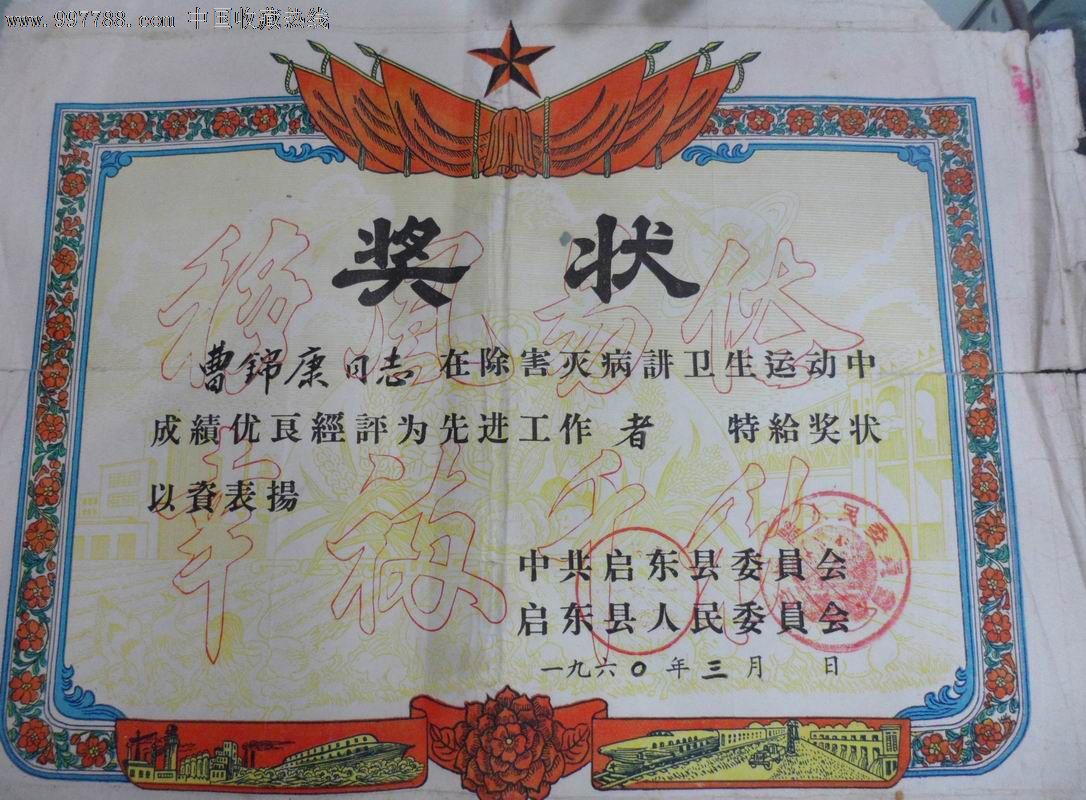 www.997788.com 中国收藏热线
奖状
移风易俗
曹锦康同志 在除害灭病讲卫生运动中
成績优良經評为先进工作 者 特給奖状
幸福千秋
以資表揚
中共启东县委員会
启东县人民委員会
一九六〇年三月 日
人民委員